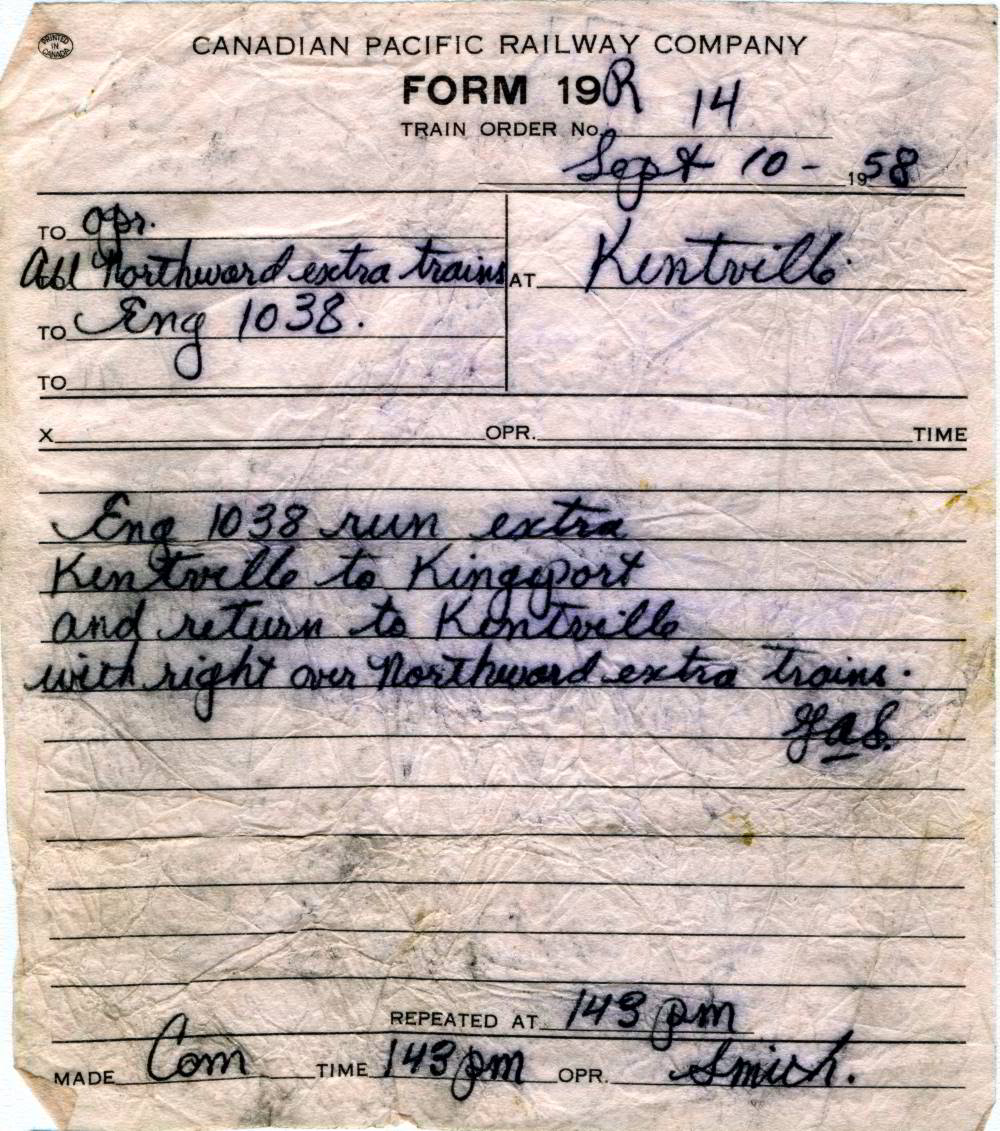 PRINTED
IN
CANADA
CANADIAN PACIFIC RAILWAY COMPANY
FORM 19R
TRAIN ORDER No. 14
Sept 10 - 1958
TO Opr.
All Northward extra trains AT Kentville
TO Eng 1038.
TO
X OPR. TIME
Eng 1038 run extra
Kentville to Kingsport
and return to Kentville
with right over Northward extra trains.
REPEATED AT 143 pm
MADE Com TIME 143 pm OPR. Smith.